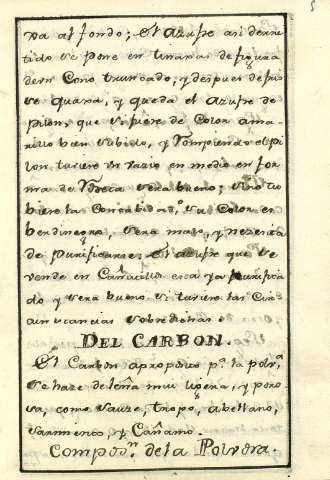 va al fondo; El Azufre asi derre
tido se pone en tinamas de figura
de un Cono truncado, y despues de frio
se quaxa, y queda el Azufre de
pilon, que si fuere de Color ama-
rillo bien subido, y rompiendo el pi
lon tuviere un vazio en medio en for
ma de Rosca sera bueno; sino tu
biere la Concabidad, o su Color en
berdinegro, sera malo, y necesita
de purificarse. El azufre que se
vende en Cañutillo esta ya purifica
do y sera bueno si tuviere las Cir
cunstancias sobredichas
DEL CARBON.
El Carbon aproposito p.ª la polv.ª
se haze de leña mui ligera, y poro
sa, como sauze, tropo, abellano,
sarmientos, y Cañamo.
Compos.n de la Polvora.
5